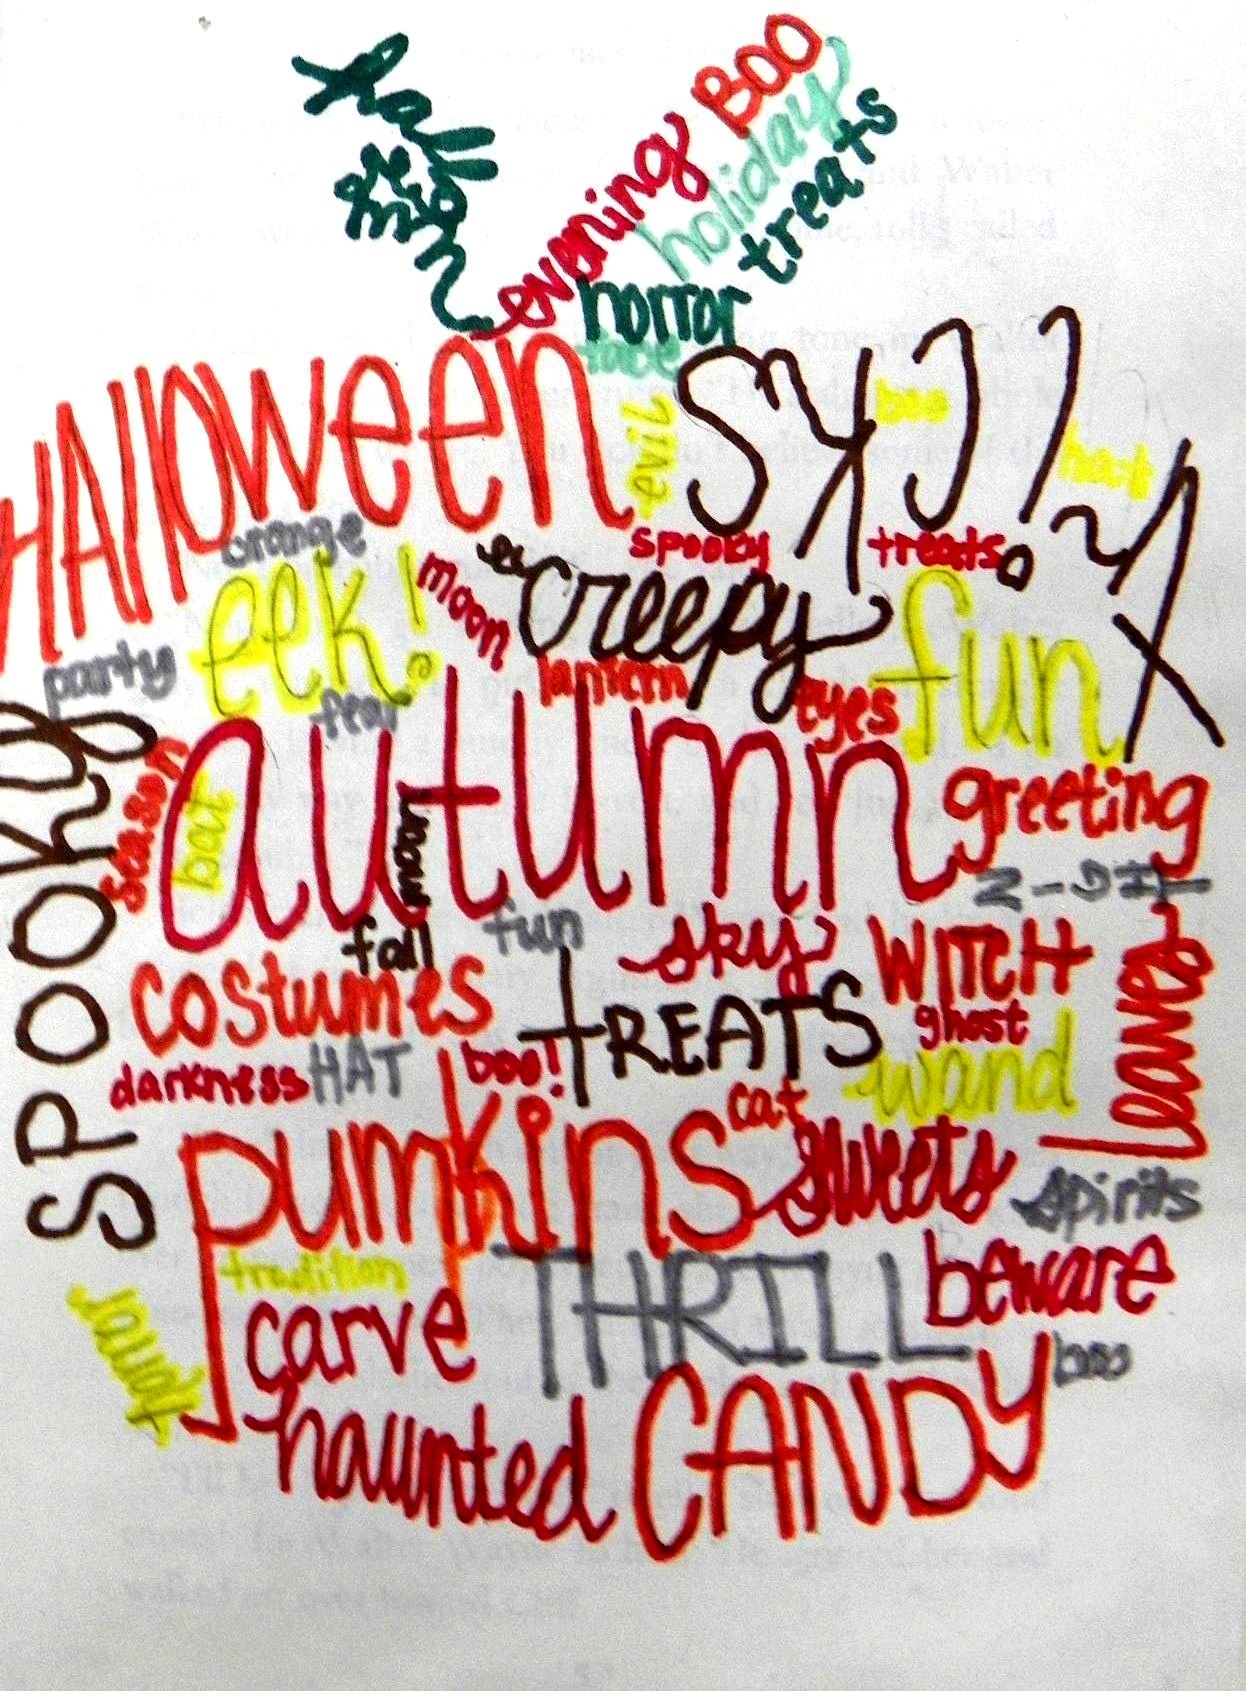 BOO
evening
holiday
treats
horror
face
HAllOween
evil
boo
hat
orange
spooky
treats
eek!
moon
creepy
fun
party
lantern
eyes
fear
SPOOKY
season
bat
autumn
moon
greeting
NIGHT
fall
fun
sky
WITCH
leaves
costumes
tREATS
ghost
darkness
HAT
boo!
wand
cat
pumkins
sweets
spirits
tradition
THRILL
beware
carve
haunted
CANDY
boo